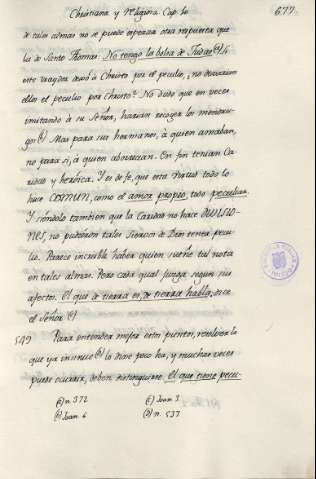 Christiana y Religiosa Cap. 60
677.
de tales almas no se puede esperar otra respuesta que
la de Santo Thomas: No tengo la bolsa de Judas (a) Si
este traydor dexó à Christo por el peculio, no dexarian
ellos el peculio por Christo? No dudo que en veces
imitando à su Señor, harian recoger los mendru-
gos (b) Mas para sus hermanos, à quien amaban,
no para sì, à quien aborrecian. En fin tenian Ca-
ridad y heróica. Y es de fe, que esta virtud todo lo
hace COMUN, como el amor propio, todo peculiar.
Y siéndolo tambien que la Caridad no hace DIVISIO-
NES, no pudieron tales Siervos de Dios tener pecu-
lio. Parece increible haber quien sueñe tal nota
en tales almas. Pero cada qual juzga segun sus
afectos. El que de tierra es, de tierra habla, dice
el Señor (c)
549 Para entender mejor estos puntos, resolver lo
que ya insinué (d) lo dixe poco ha, y muchas veces
puede ocurrir, deben distinguirse. El que tiene pecu-
(a) n. 372
(b) Joan 6
(c) Joan 3.
(d) n. 537